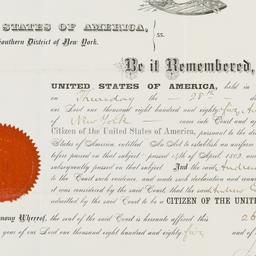 STATES OF AMERICA,
Southern District of New York. ss.
Be it Remembered,
UNITED STATES OF AMERICA, held in
on Thursday the 28th
our Lord one thousand eight hundred and eighty five,
of New York came into Court and
Citizen of the United States of America, pursuant to the
States of America entitled An Act to establish an uniform
tofore passed on that subject passed 14th of April 1802, and
subsequently passed on that subject And the said Andrew
to the Court such evidence, and made such declaration and
it was considered by the said Court, that the said Andrew
admitted by the said Court to be a CITIZEN OF THE UNITED
mony Whereof, the seal of the said Court is hereunto affixed this 26
year of our Lord one thousand eight hundred and eighty five